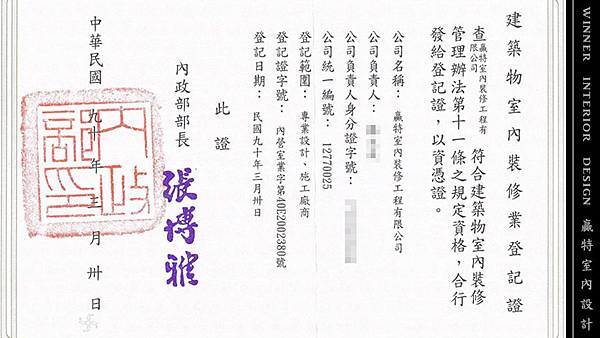 建築物室內裝修業登記證
查贏特室內裝修工程有限公司 符合建築物室內裝修
管理辦法第十一條之規定資格，合行
發給登記證，以資憑證。
公司名稱：贏特室內裝修工程有限公司
公司負責人：
公司負責人身分證字號：
公司統一編號：12770025
登記範圍：專業設計、施工廠商
登記證字號：內營室業字第40E2002380號
登記日期：民國九十年三月卅日
此證
內政部部長
張博雅
中華民國 九十 年 三 月 卅 日
內政部印
WINNER INTERIOR DESIGN 贏特室內設計